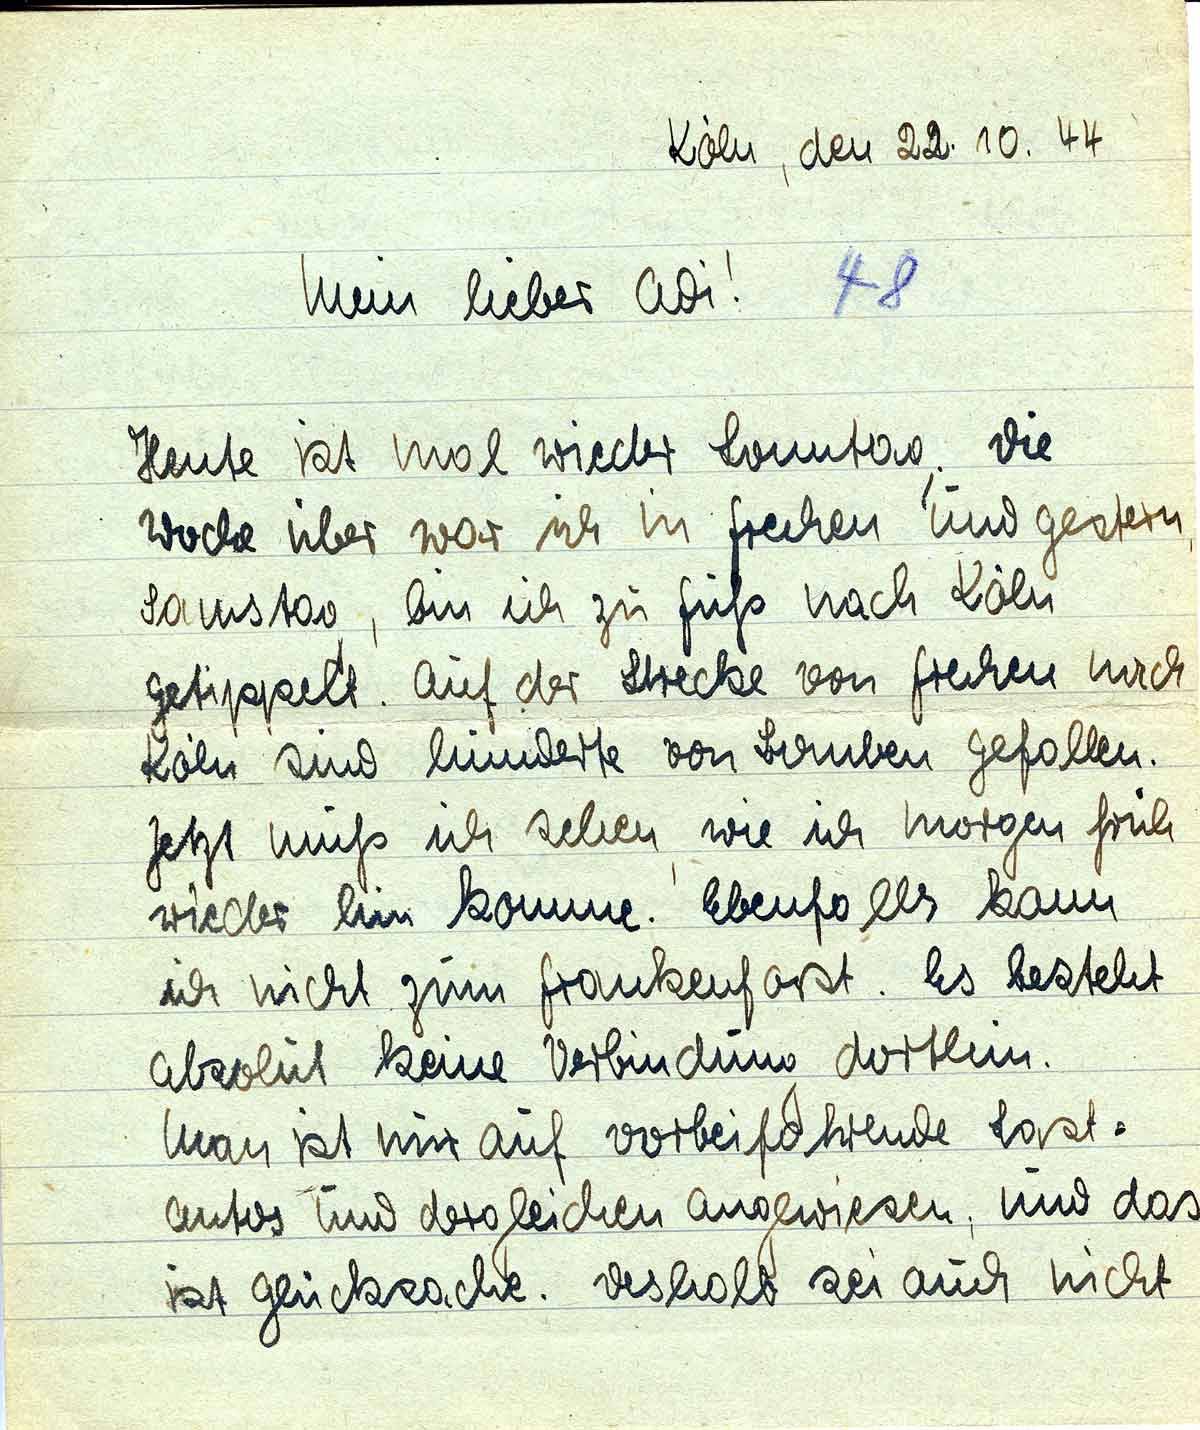 Köln, den 22. 10. 44
Mein lieber Adi! 48
Heute ist mal wieder Sonntag. Die
Woche über war ich in Frechen und gestern,
Samstag, bin ich zu Fuß nach Köln
getippelt. Auf der Strecke von Frechen nach
Köln sind hunderte von Bomben gefallen.
Jetzt muß ich sehen, wie ich morgen früh
wieder hin komme. Ebenfalls kann
ich nicht zum Frankenforst. Es besteht
absolut keine Verbindung dorthin.
Man ist nur auf vorbeifahrende Last-
autos und dergleichen angewiesen, und das
ist Glücksache. Deshalb sei auch nicht